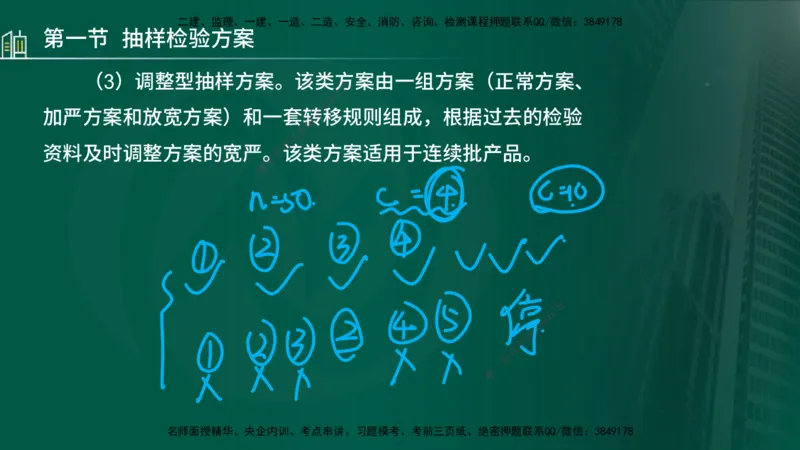 二建、监理、一建、一造、二造、安全、消防、咨询、检测课程押题联系QQ/微信：3849178
第一节 抽样检验方案
（3）调整型抽样方案。该类方案由一组方案（正常方案、
加严方案和放宽方案）和一套转移规则组成，根据过去的检验
资料及时调整方案的宽严。该类方案适用于连续批产品。
n=50. C=4 C=10
① ② ③ ④
① ② ③ ② ④ ⑤ 停
名师面授精华、央企内训、考点串讲、习题模考、考前三页纸、绝密押题联系QQ/微信：3849178